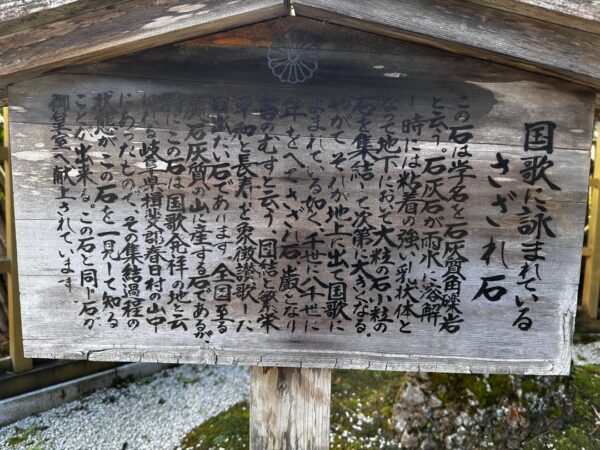 国歌に詠まれている
さざれ石
この石は学名を石灰質角礫岩
と云う。石灰石が雨水に溶解
し時には粘着の強い乳状体と
なって地下において大粒の石小粒の
石を集結して次第に大きくなる。
やがてそれが地上に出て国歌に
よまれている如く千世に八千世に
年をへてさざれ石、巌となりて
苔のむすと云う 団結と繁栄
平和と長寿を象徴讃歌した
目出たい石であります。全国至る
處石灰質の山に産する石であるが
特にこの石は国歌発祥の地と云
われる岐阜県揖斐郡春日村の山中
にあったもので、その集結過程の
状態がこの石を一見して知る
ことが出来る。この石と同じ石が、
御皇室へ献上されています。